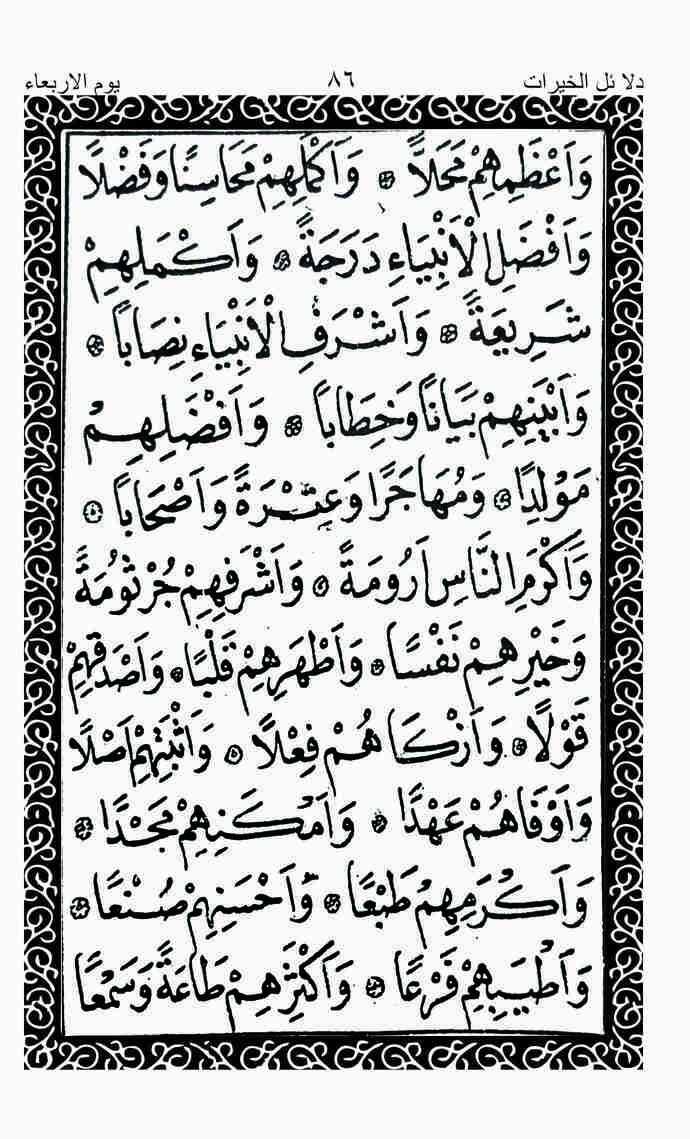 دلائل الخيرات ٨٦ يوم الاربعاء
وَاَعْظَمِهِمْ مَحَلاًّ ۞ وَاَكْمَلِهِمْ مَحَاسِنًا وَفَضْلًا
وَاَفْضَلِ الْاَنْبِيَاءِ دَرَجَةً ۞ وَاَكْمَلِهِمْ
شَرِيعَةً ۞ وَاَشْرَفِ الْاَنْبِيَاءِ نِصَابًا ۞
وَاَبْيَنِهِمْ بَيَانًا وَخِطَابًا ۞ وَاَفْضَلِهِمْ
مَوْلِدًا ۞ وَمُهَاجَرًا وَعِتْرَةً وَاَصْحَابًا ۞
وَاَكْرَمِ النَّاسِ اَرُومَةً ۞ وَاَشْرَفِهِمْ جُرْثُومَةً
وَخَيْرِهِمْ نَفْسًا ۞ وَاَطْهَرِهِمْ قَلْبًا ۞ وَاَصْدَقِهِمْ
قَوْلًا ۞ وَاَزْكَاهُمْ فِعْلًا ۞ وَاَثْبَتِهِمْ اَصْلًا
وَاَوْفَاهُمْ عَهْدًا ۞ وَاَمْكَنِهِمْ مَجْدًا ۞
وَاَكْرَمِهِمْ طَبْعًا ۞ وَاَحْسَنِهِمْ صُنْعًا ۞
وَاَطْيَبِهِمْ فَرْعًا ۞ وَاَكْثَرِهِمْ طَاعَةً وَسَمْعًا